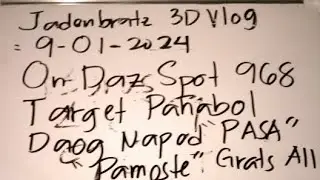 Jadenbratz 3D Vlog
= 9-01-2024
On Dazs Spot 968
Target Pañabol
Daog Napod PASA"
Pamoste" Grats All